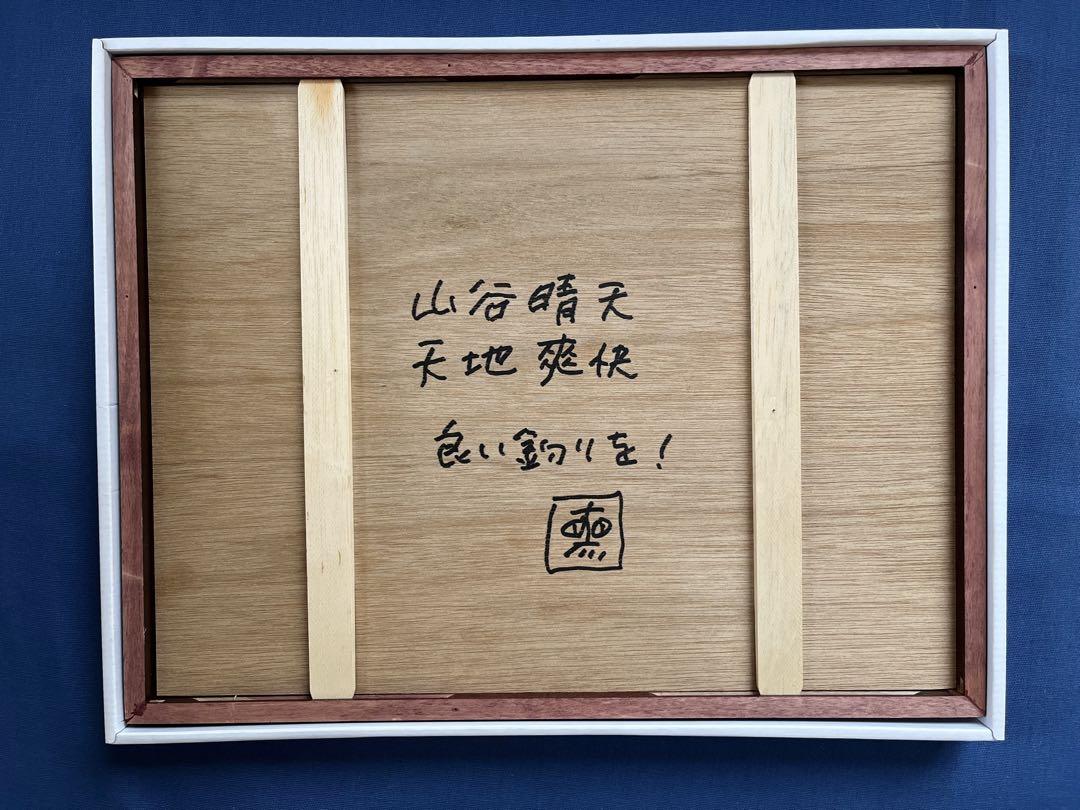 山谷晴天
天地爽快
良い釣りを！